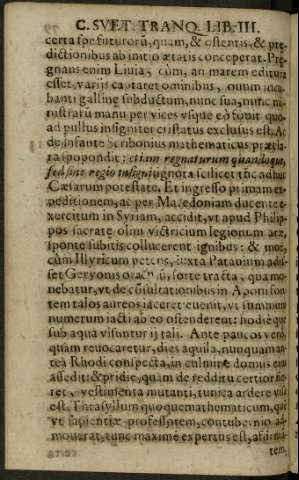 C. SVET. TRANQ. LIB. III.
certa spe futurorū, quam, & ostentis, & præ-
dictionibus ab initio ætatis conceperat. Præ-
gnans enim Liuia, cùm, an marem editura
esset, varijs captaret ominibus, ouum incu-
banti gallinę subductum, nunc sua, nunc mi-
nistrarū manu per vices vsque eò fouit quo-
ad pullus insigniter cristatus exclusus est. Ac
de infante Scribonius mathematicus præcla-
ra spopondit; etiam regnaturum quandoque,
sed sine regio insigni ignota scilicet tūc adhuc
Cæsarum potestate. Et ingresso primam ex-
peditionem, ac per Macedoniam ducente e-
xercitum in Syriam, accidit, vt apud Philip-
pos sacratę olim victricium legionum aræ,
sponte subitis collucerent ignibus: & mox,
cùm Illyricum petens, iuxta Patauium adis-
set Geryonis oraculū, sorte tracta, qua mo-
nebatur, vt de cōsultationibus in Aponi fon-
tem talos aureos iaceret euenit, vt summum
numerum iacti ab eo ostenderent: hodieque
sub aqua visuntur ij tali. Ante paucos verò,
quàm reuocaretur, dies aquila, nunquam an-
tea Rhodi conspecta, in culmine domus eius
assedit: & pridie, quàm de redditu certior fie-
ret, vestimenta mutanti, tunica ardere visa
est. Thrasyllum quoque mathematicum, quē
vt sapientiæ professorem, contubernio ad-
mouerat, tunc maximè expertus est, affirmā-
tem,